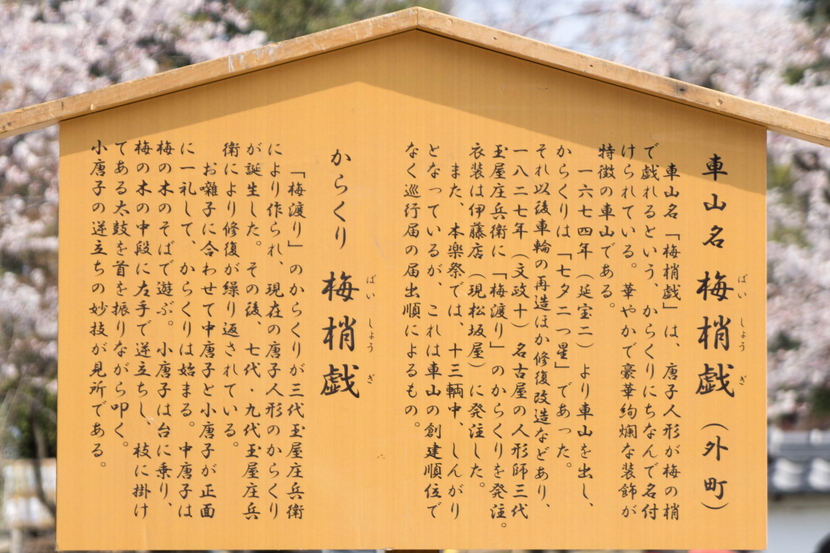 車山名 梅梢戯 (外町)
ばい しょう ぎ
車山名「梅梢戯」は、唐子人形が梅の梢
で戯れるという、からくりにちなんで名付
けられている。華やかで豪華絢爛な装飾が
特徴の車山である。
一六七四年(延宝二)より車山を出し、
からくりは「七夕二つ星」であった。
それ以後車輪の再造ほか修復改造などあり、
一八二七年(文政十)名古屋の人形師三代
玉屋庄兵衛に「梅渡り」のからくりを発注。
衣装は伊藤店(現松坂屋)に発注した。
また、本楽祭では、十三輌中、しんがり
となっているが、これは車山の創建順位で
なく巡行届の届出順によるもの。
からくり 梅梢戯
ばい しょう ぎ
「梅渡り」のからくりが三代玉屋庄兵衛
により作られ、現在の唐子人形のからくり
が誕生した。その後、七代・九代玉屋庄兵
衛により修復が繰り返されている。
お囃子に合わせて中唐子と小唐子が正面
に一礼して、からくりは始まる。中唐子は
梅の木のそばで遊ぶ。小唐子は台に乗り、
梅の木の中段に左手で逆立ちし、枝に掛け
てある太鼓を首を振りながら叩く。
小唐子の逆立ちの妙技が見所である。